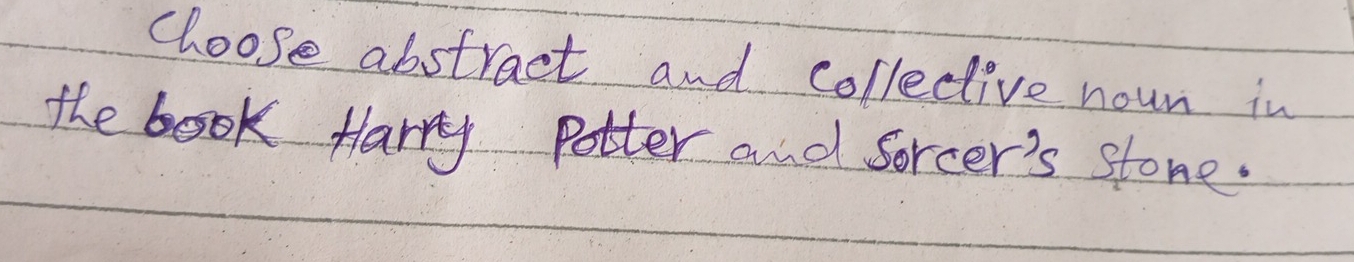 Choose abstract and collective noun in
the book Harry Potter and Sorcer's stone.